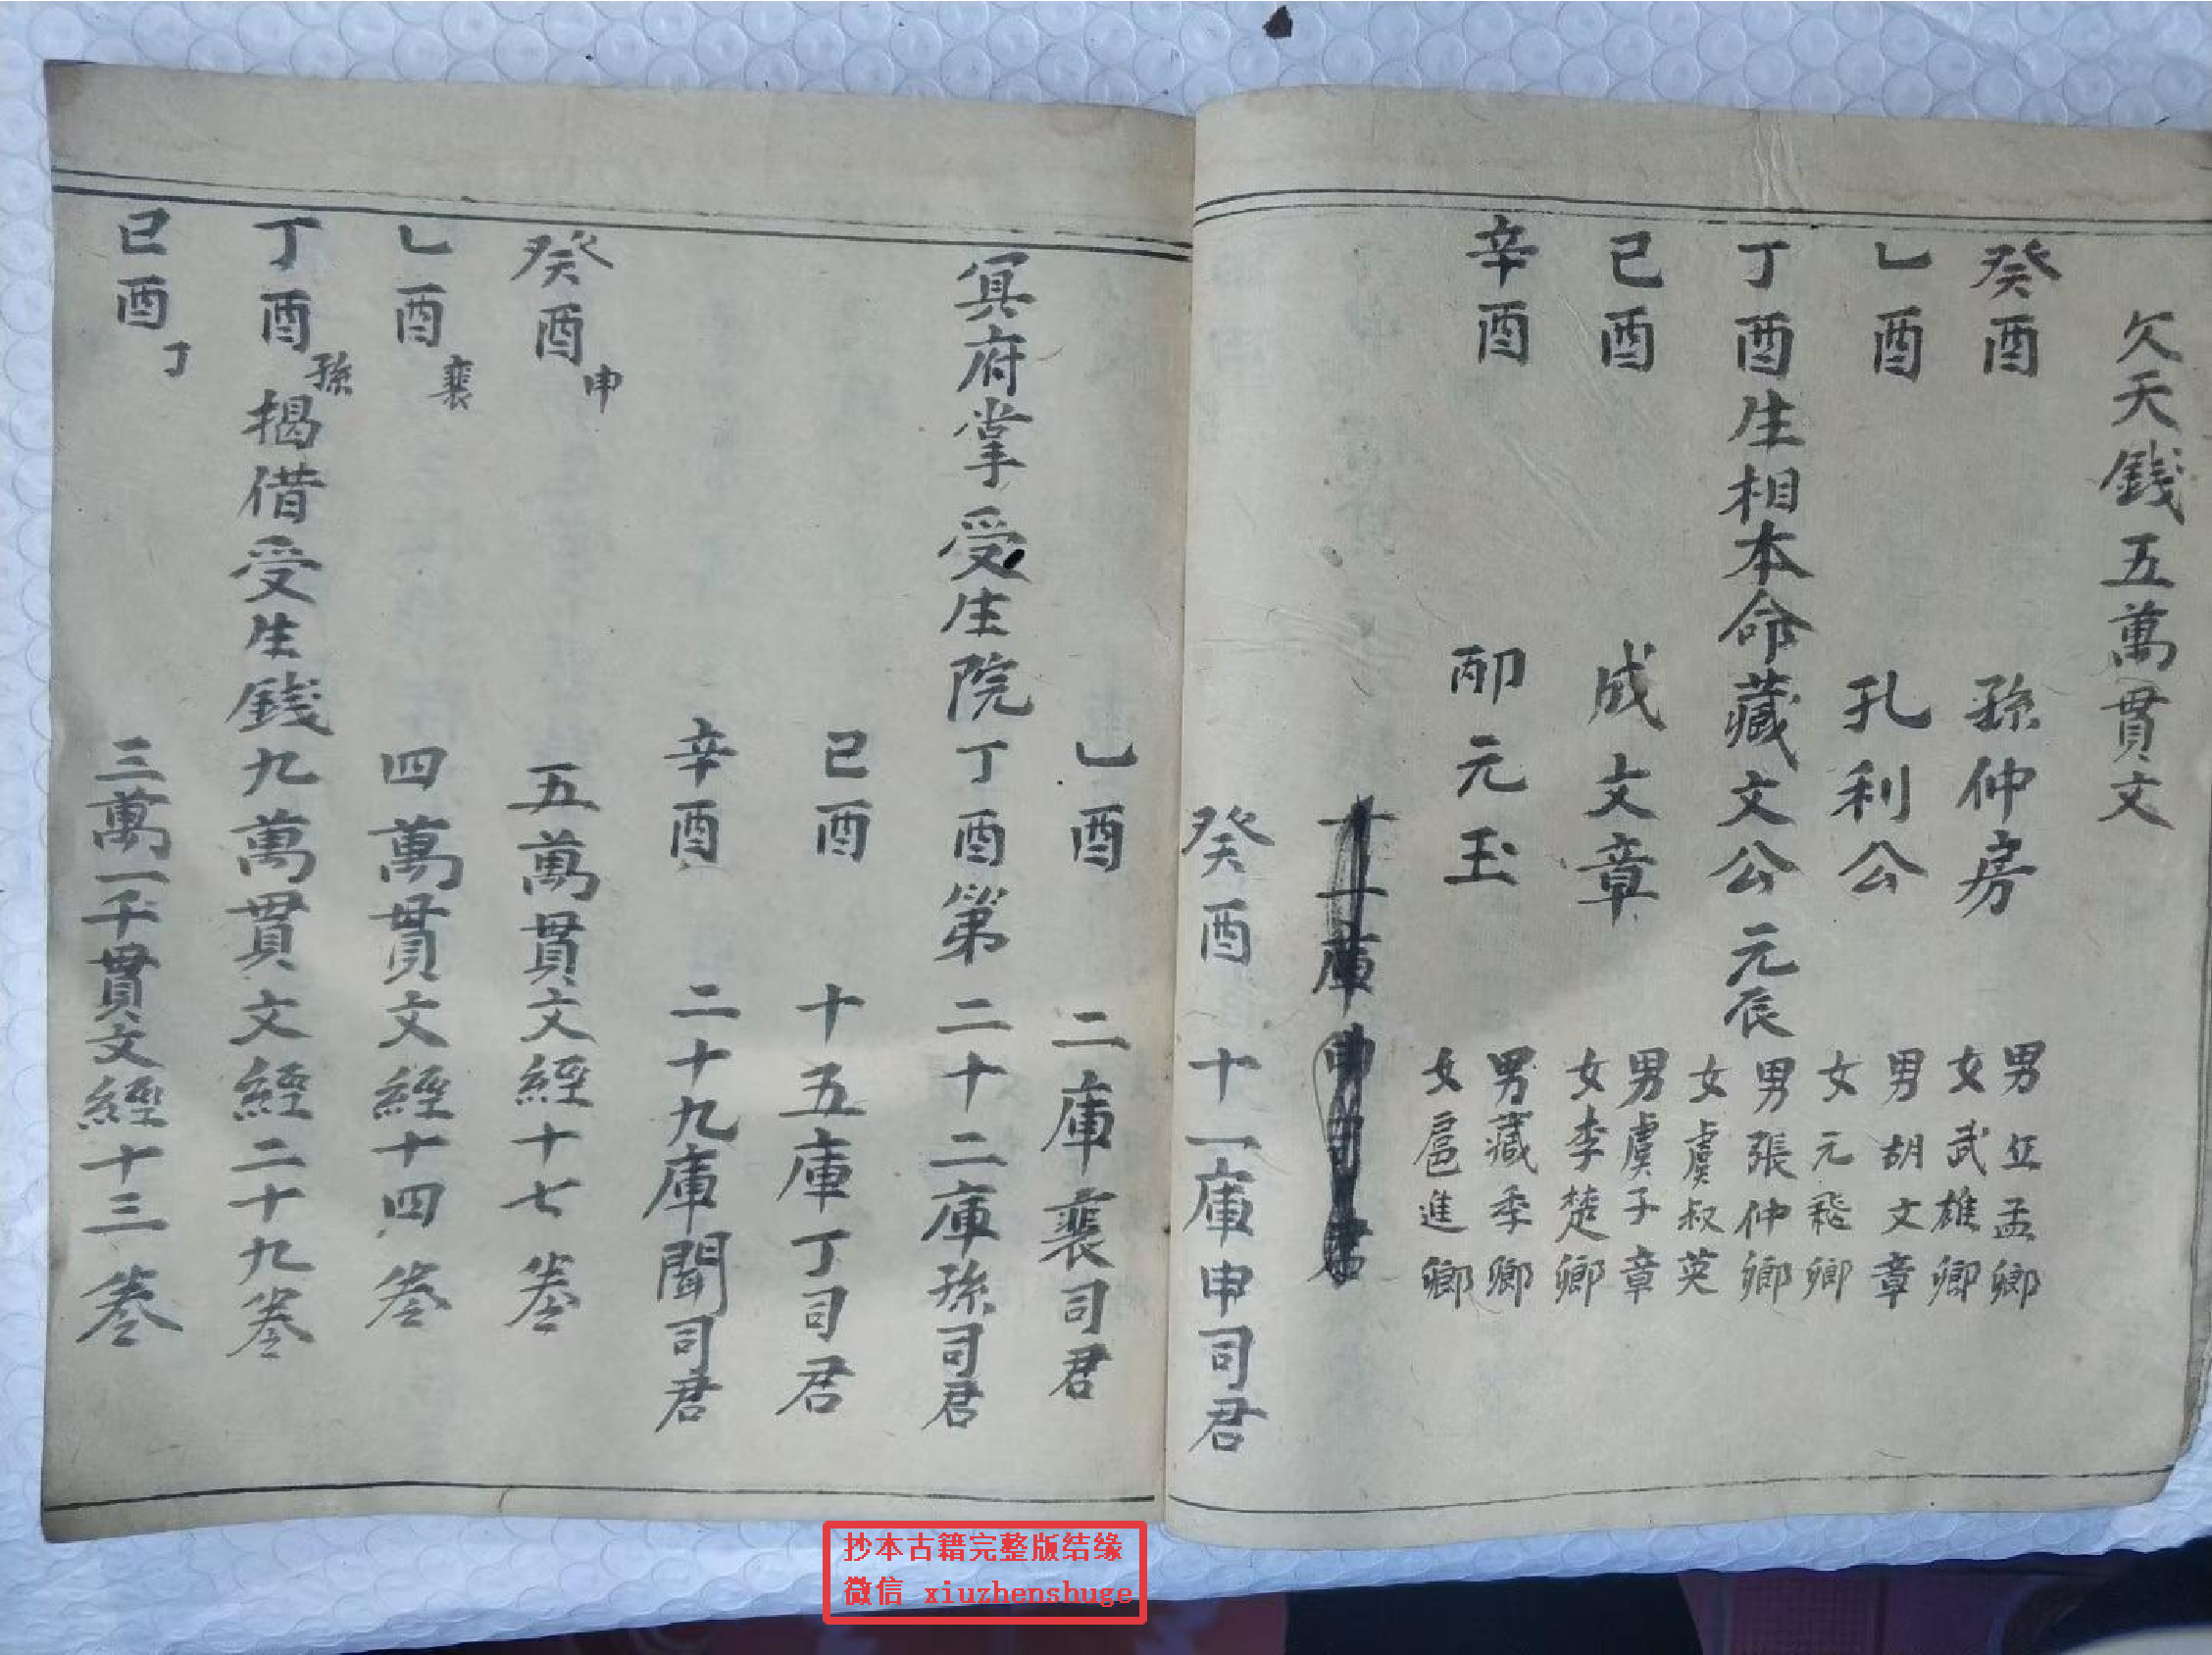 欠天錢五萬貫文
癸酉 孫仲房 男丘孟卿 女武雄卿
乙酉 孔利公 男胡文章 女元飛卿
丁酉生相本命藏文公元辰 男張仲卿 女虞叔英
己酉 成文章 男虞子章 女李楚卿
辛酉 元玉 男藏季卿 女扈進卿
十一庫申司君
癸酉 十一庫申司君
乙酉 二庫裴司君
冥府掌受生院丁酉第二十二庫孫司君
己酉 十五庫丁司君
辛酉 二十九庫聞司君
癸酉申 五萬貫文經十七卷
乙酉裴 四萬貫文經十四卷
丁酉孫揭借受生錢九萬貫文經二十九卷
己酉丁 三萬一千貫文經十三卷
抄本古籍完整版结缘
微信 xiuzhenshuge